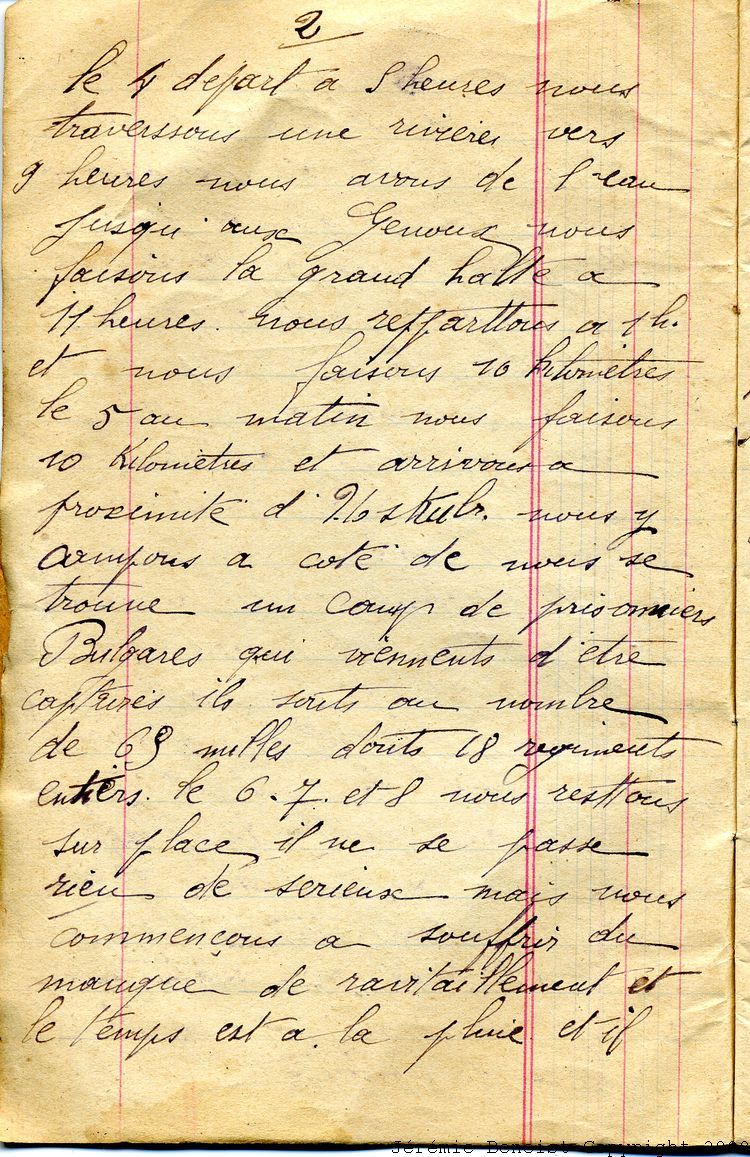 2
le 4 depart a 5 heures nous
traverssons une rivières vers
9 heures nous avons de l'eau
jusqu'aux Genoux nous
faisons la grand halte a
11 heures. nous reffarttons a 1 h.
et nous faisons 10 kilomètres
le 5 au matin nous faisons
10 Kilomètres et arrivons a
proximité d' nous y
campons a coté de nous se
trouve un camp de prisonniers
Bulgares qui viennents d'être
capturés ils sonts au nombre
de 63 milles donts 18 regiments
entiers. le 6. 7. et 8 nous resttons
sur place il ne se passe
rien de serieux mais nous
commençons a souffrir du
manque de ravitaillement et
le temps est a la pluie et il
Jérémie Benoist Copyright